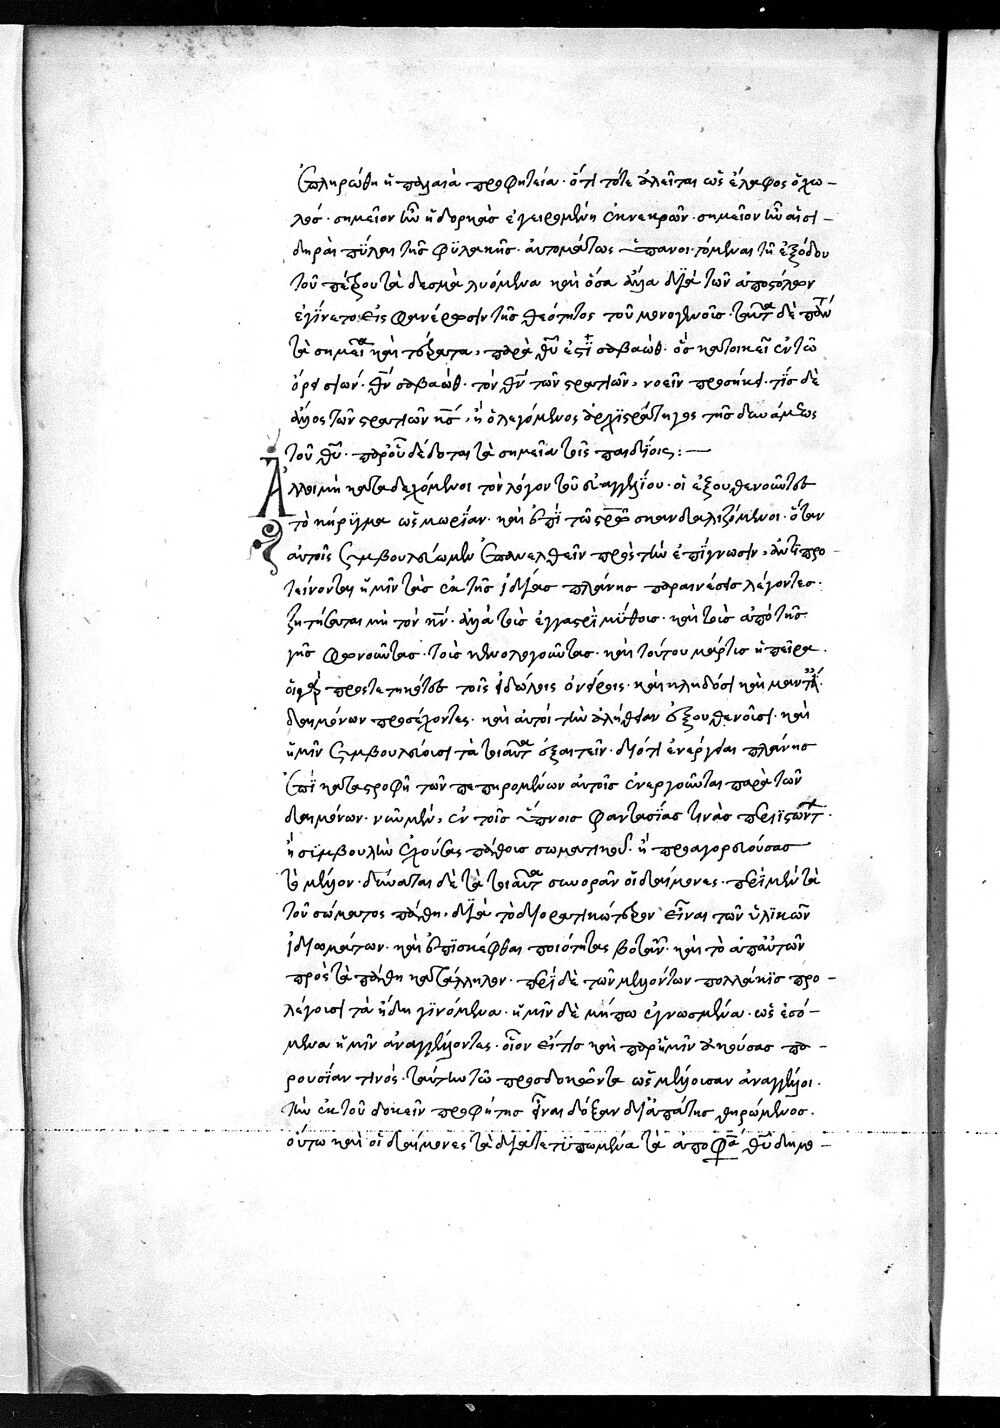 ἐπληρώθη ἡ παλαιὰ προφητεία· ὅτι τότε ἁλεῖται ὡς ἔλαφος ὁ χω-
λός· σημεῖον ἦν ἡ δορκὰς ἐγειρομένη ἐκ νεκρῶν· σημεῖον ἦν αἱ σι-
δηραὶ πύλαι τῆς φυλακῆς· αὐτομάτως ὑπανοιγόμεναι τῇ ἐξόδῳ
τοῦ πέτρου τὰ δεσμὰ λυόμενα καὶ ὅσα ἄλλα διὰ τῶν ἀποστόλων
ἐγίνετο εἰς φανέρωσιν τῆς θεότητος τοῦ μονογενοῦς· ταῦτα δὲ πάντα
τὰ σημεῖα καὶ τέρατα, παρὰ θῦ ἐστὶ σαβαώθ· ὃς κατοικεῖ ἐν τῷ
ὄρει σιών· θν σαβαώθ· τὸν θν τῶν στρατιῶν, νοεῖν προσήκει· τίς δὲ
ἄλλος τῶν στρατιῶν κς, ἢ ὁ λεγόμενος ἀρχιστράτηγος τῆς δυνάμεως
τοῦ θυ· παρ' οὗ δέδοται τὰ σημεῖα τοῖς παιδίοις:—
Ἀλλοι μὴ καταδεχόμενοι τὸν λόγον τοῦ εὐαγγελίου· οἱ ἐξουθενοῦντες
τὸ κήρυγμα ὡς μωρίαν· καὶ ἐπὶ τῷ στρῶ σκανδαλιζόμενοι· ὅταν
αὐτοῖς συμβουλεύωμεν ἐπανελθεῖν πρὸς τὴν ἐπίγνωσιν, ἀντιπρο-
τείνονται ἡμῖν τὰς ἐκ τῆς ἰδίας πλάνης παραινέσεις λέγοντες·
ζητήσαται μὴ τὸν κν· ἀλλὰ τοῖς ἐγγαστριμύθοις· καὶ τοῖς ἀπὸ τῆς
γῆς φωνοῦντας· τοῖς κενολογοῦντας· καὶ τούτου μάρτυς ἡ πεῖρα·
οἱ γὰρ προστετηκότες τοῖς εἰδώλοις ὀνείροις· καὶ κληδόσι καὶ μαντείαις
δαιμόνων προσέχοντες· καὶ αὐτοὶ τὴν ἀλήθειαν ἐξουθενοῦσι· καὶ
ἡμῖν συμβουλεύουσι τὰ τοιαῦτα ἐξαιτεῖν· διότι ἐνέργειαι πλάνης
ἐπὶ καταστροφῇ τῶν πεπηρωμένων αὐτοῖς ἐνεργοῦνται παρὰ τῶν
δαιμόνων· νῦν μὲν, ἐν τοῖς ὕπνοις φαντασίας τινὰς περιιστῶντ·
ἢ συμβουλὴν ἐχούσας πάθους σωματικοῦ· ἢ προαγορευούσας
τὸ μέλλον· δύναται δὲ τὰ τοιαῦτα συνορᾶν οἱ δαίμονες· περὶ μὲν τὰ
τοῦ σώματος πάθη, διὰ τὸ διορατικώτερον εἶναι τῶν ὑλικῶν
ἰδιωμάτων· καὶ ἐπισκέφθαι ποιότητας βοταν· καὶ τὸ ἀπ' αὐτῶν
πρὸς τὰ πάθη κατάλληλον· περὶ δὲ τῶν μελλόντων πολλάκις προ-
λέγουσι τὰ ἤδη γινόμενα· ἡμῖν δὲ μήπω ἐγνωσμένα· ὡς ἐσό-
μενα ἡμῖν ἀναγγέλλοντες· οἷον εἴ τις καὶ παρ' ἡμῖν ἀκούσας πα-
ρουσίαν τινός· ταύτην τῷ προσδοκῶντα ὡς μέλλουσαν ἀναγγέλλοι·
τὴν ἐκ τοῦ δοκεῖν προφήτης εἶναι δόξαν δι' ἀπάτης θηρώμενος·
οὕτω καὶ οἱ δαίμονες τὰ διατετυπωμένα τὰ ἀποφα θυ δημο-